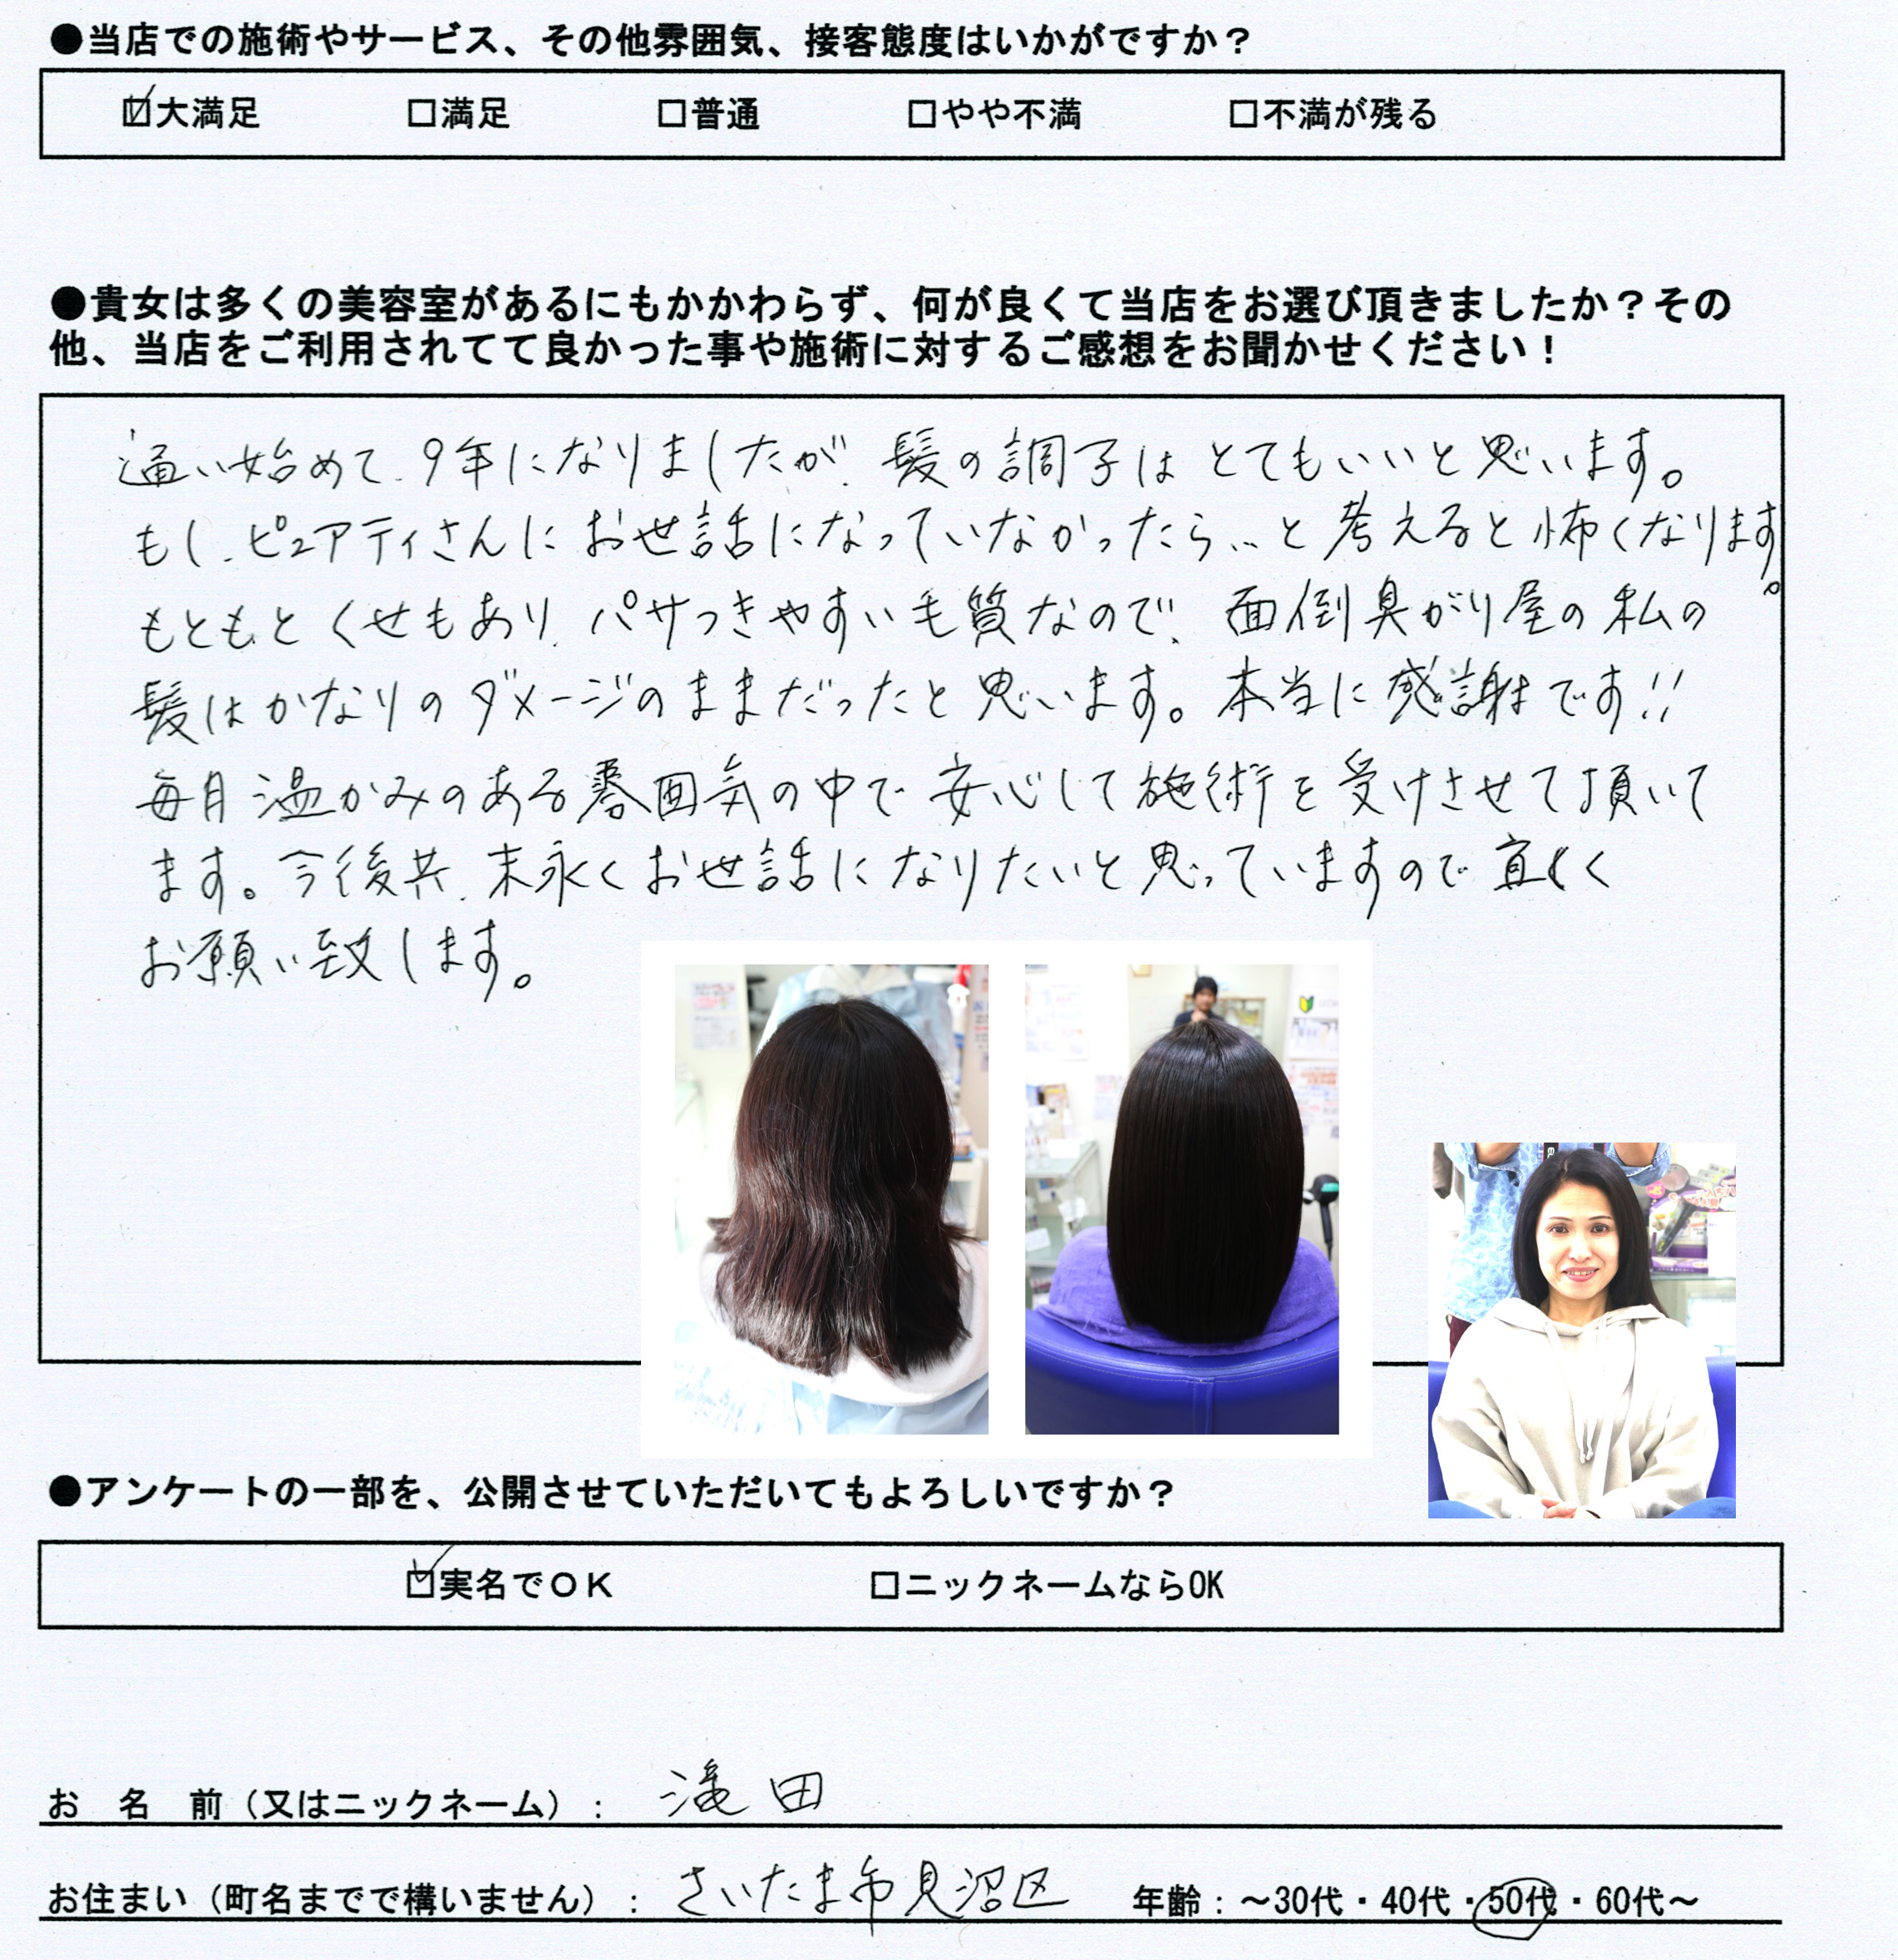 ●当店での施術やサービス、その他雰囲気、接客態度はいかがですか？
☑大満足 □満足 □普通 □やや不満 □不満が残る
●貴女は多くの美容室があるにもかかわらず、何が良くて当店をお選び頂きましたか？その
他、当店をご利用されてて良かった事や施術に対するご感想をお聞かせください！
通い始めて、9年になりましたが、髪の調子はとてもいいと思います。
もし、ピュアティさんにお世話になっていなかったら…と考えると怖くなります。
もともとくせもあり、パサつきやすい毛質なので、面倒臭がり屋の私の
髪はかなりのダメージのままだったと思います。本当に感謝です!!
毎月温かみのある雰囲気の中で安心して施術を受けさせて頂いて
ます。今後共、末永くお世話になりたいと思っていますので宜しく
お願い致します。
●アンケートの一部を、公開させていただいてもよろしいですか？
☑実名でＯＫ □ニックネームならOK
お 名 前（又はニックネーム）： 滝田
お住まい（町名までで構いません）： さいたま市見沼区 年齢：～30代・40代・50代・60代～